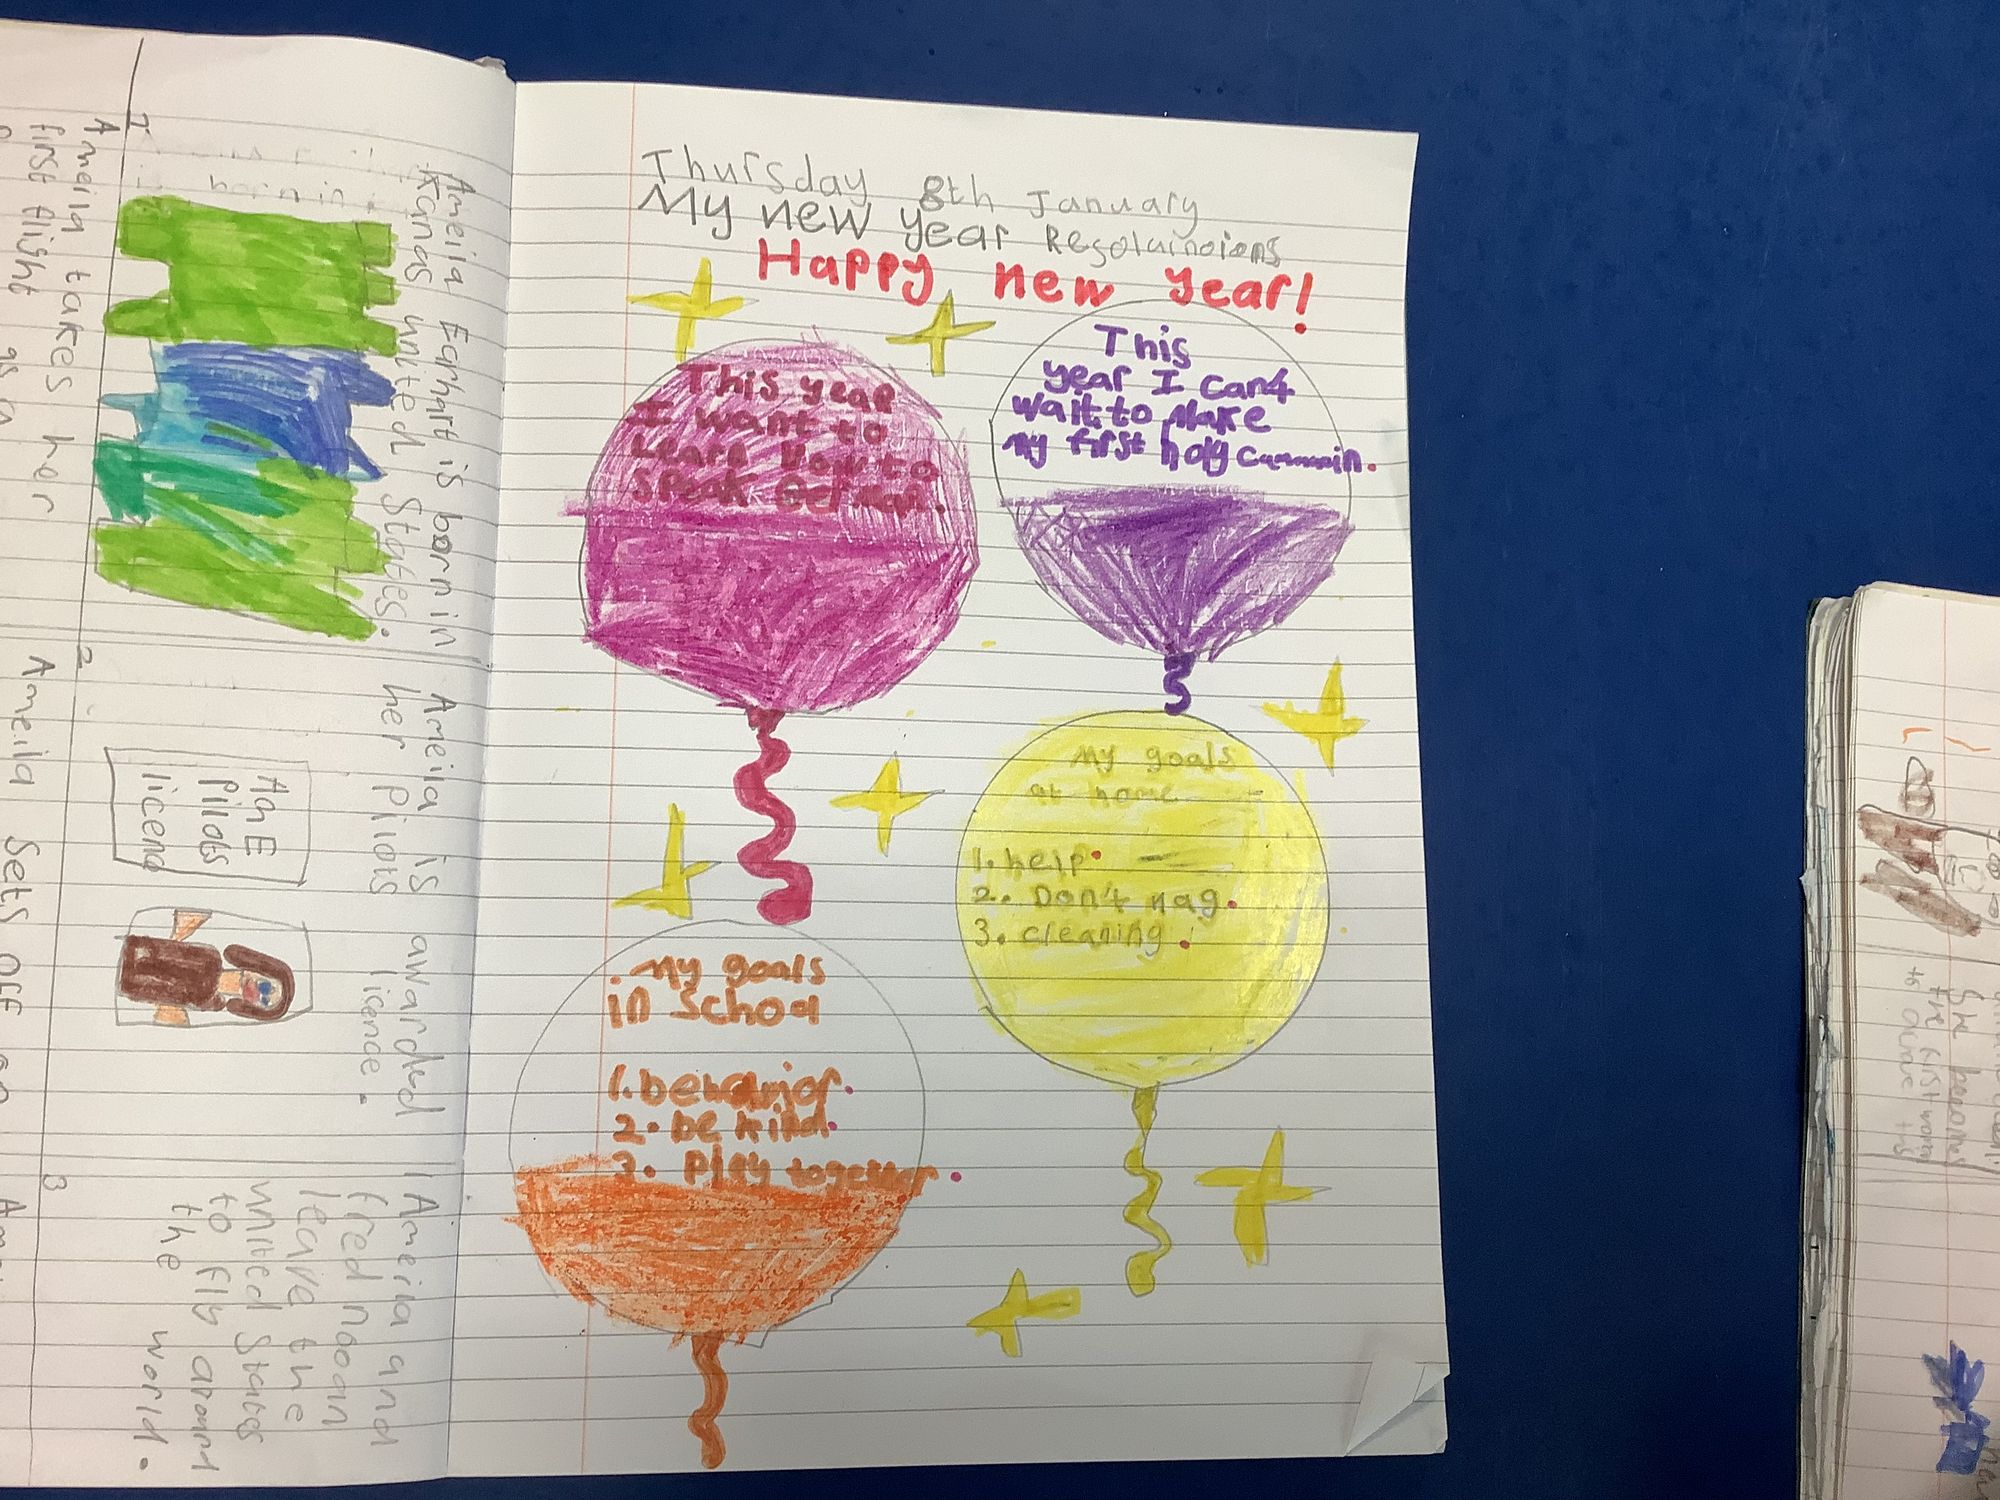 Thursday 8th January
My new year Resoluindions
Happy new year!
This year
I want to
Learn how to
speak German.
This
year I can4
wait to Make
my first holy cummoin.
My goals
at home
1. help.
2. Don't nag.
3. cleaning.
My goals
in school
1. behavior.
2. be kind.
3. play together.
1
Ameia Eerhart is born in
Kanas united States.
Ameila takes her
first flight as a
2
Ameila is awarded
her pilots licence.
AhE
Pilots
licend
Ameila sets off
3
Ameila and
fred nooan
leave the
united States
to fly around
the world.
She becomes
the first